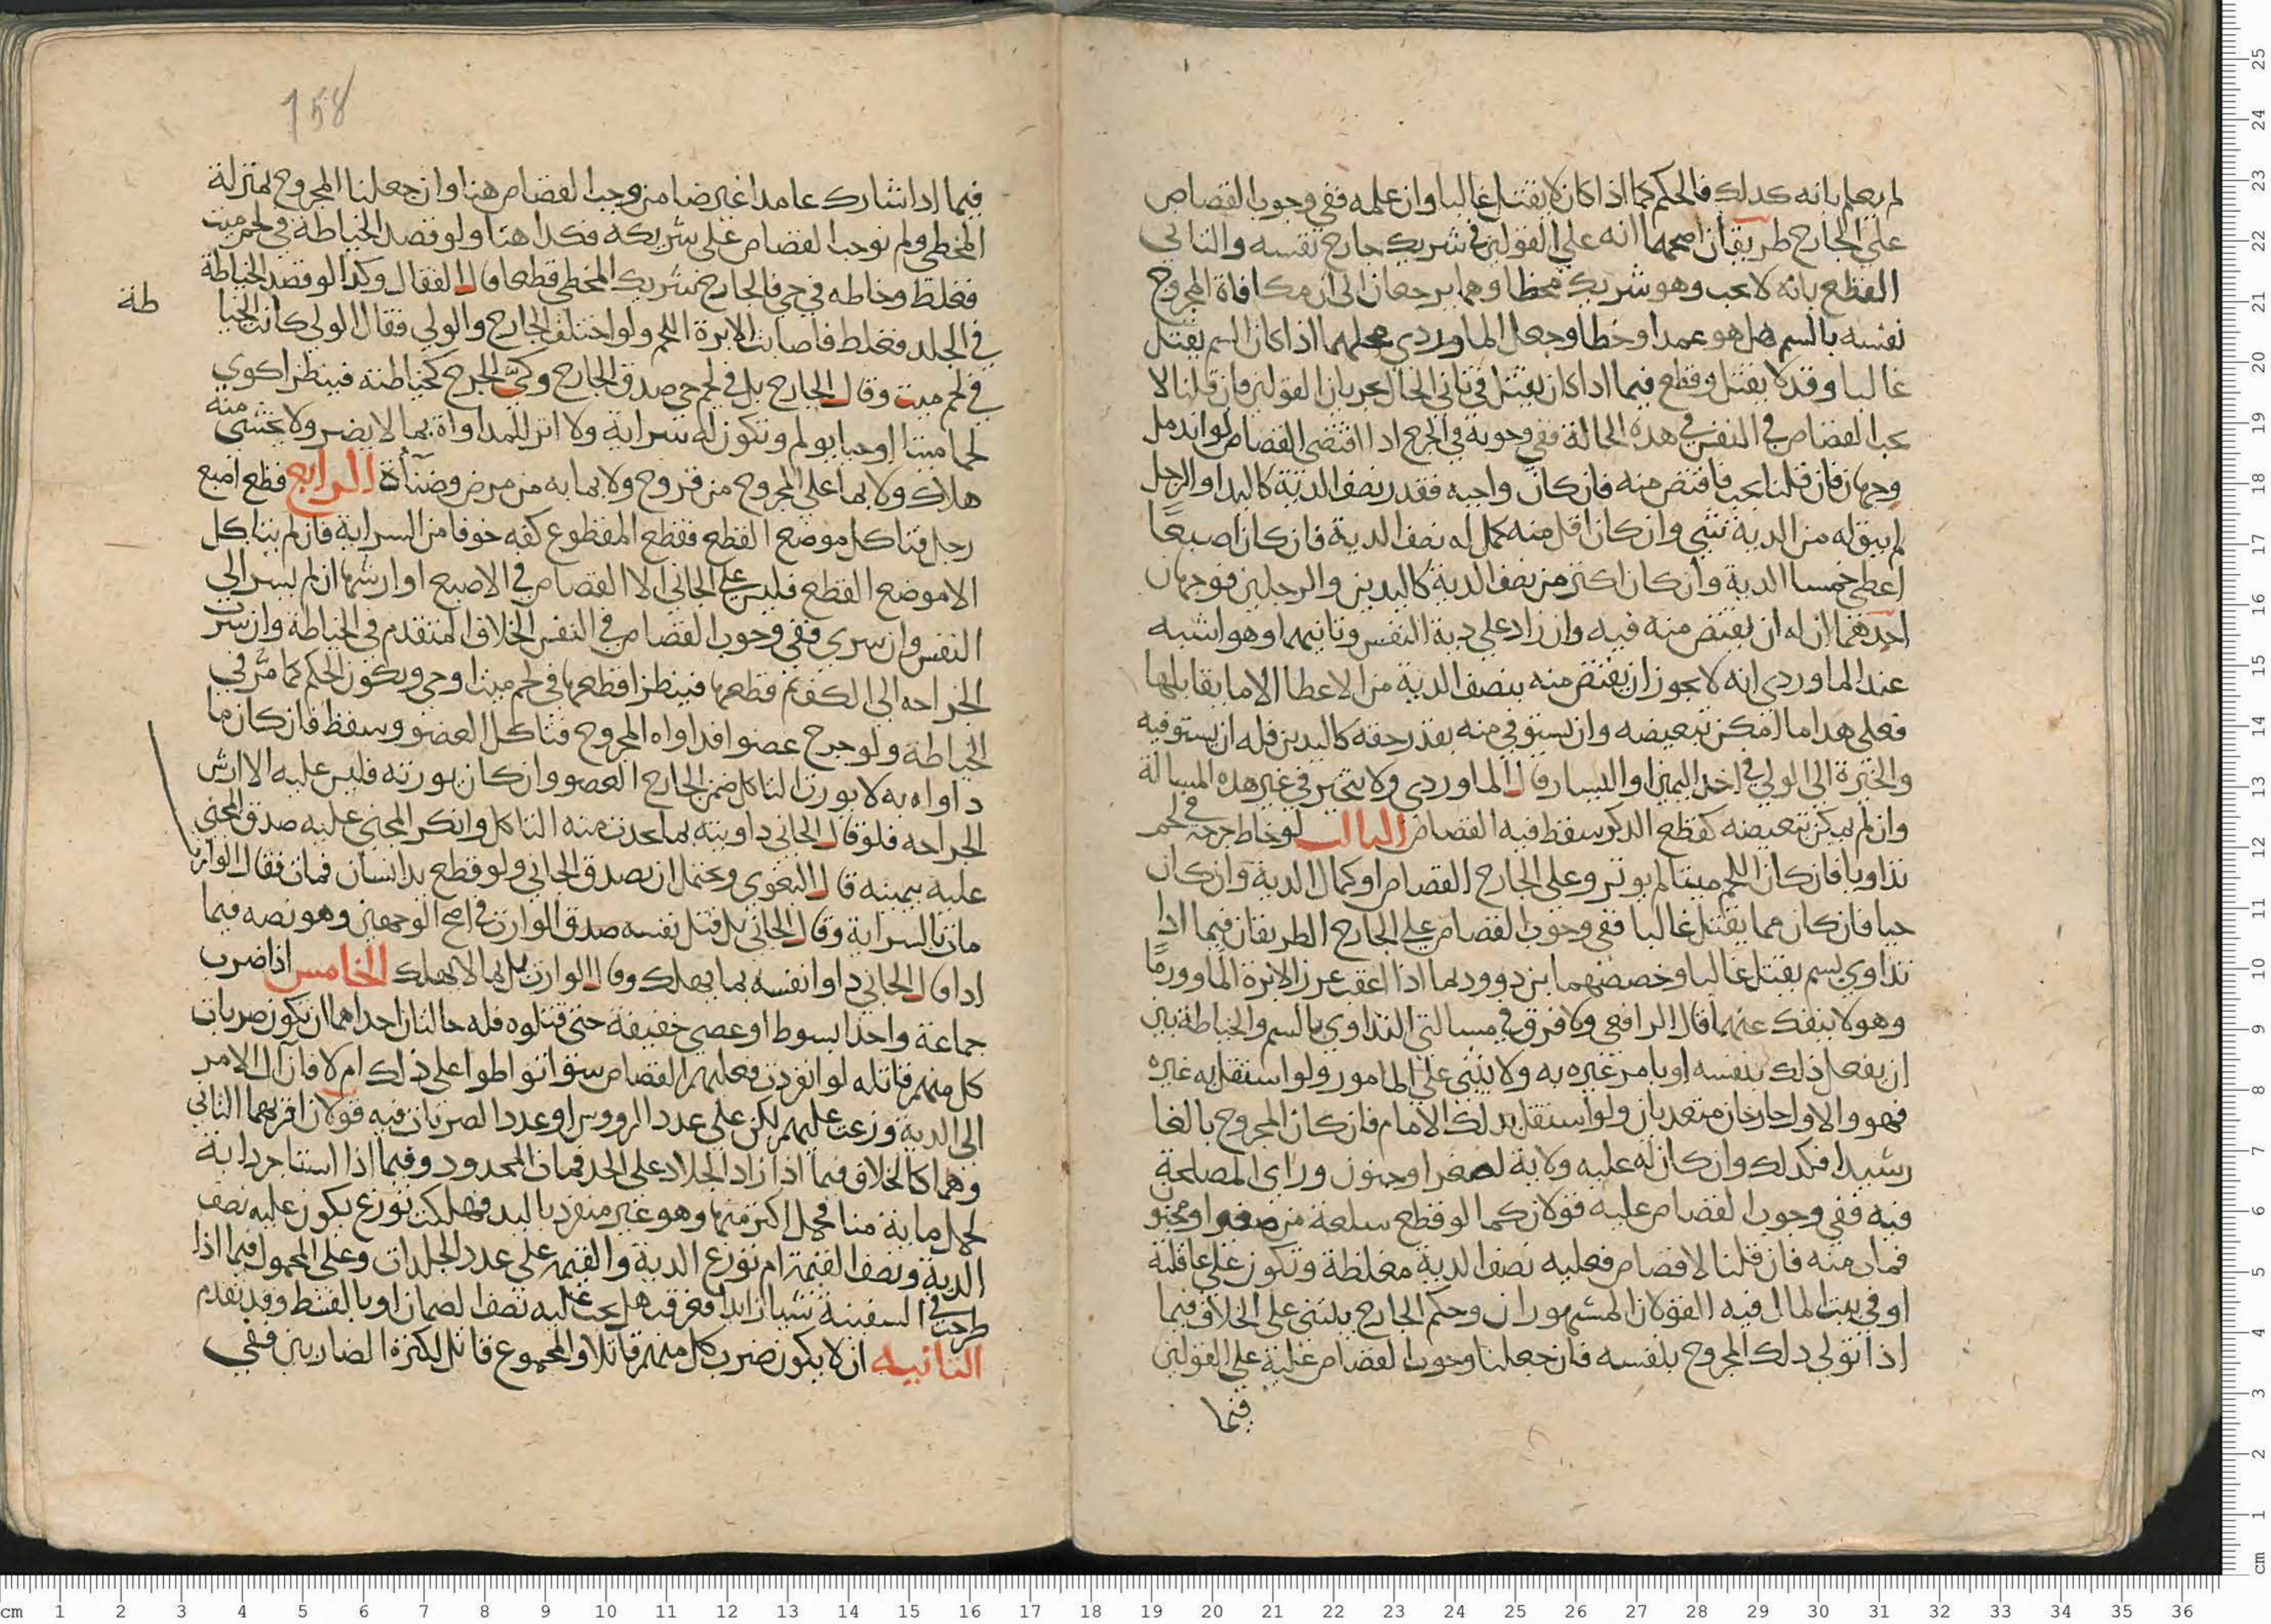 لم يعلم بانه كذلك فالحكم كما اذا كان لا يقتل غالبا وان علمه ففي وجوب القصاص
على الجارح طريقان اصحهما انه على القولين في شريك جارح نفسه والثاني
القطع بانه لا يجب وهو شريك مخطا وهما يرجعان الى ان مكافاة المجروح
نفسه بالسم هل هو عمد او خطا وجعل الماوردي محلهما اذا كان السم يقتل
غالبا وقد لا يقتل وقطع فيما اذا كان يقتل في ثاني الحال بجريان القولين فان قلنا لا
يجب القصاص في النفس في هذه الحالة ففي وجوبه في الجرح اذا اقتضى القصاص لو اندمل
وجهان فان قلنا يجب فاقتص منه فان كان واجبه فقدر نصف الدية كاليد او الرجل
لم يبق له من الدية شي وان كان اقل منه كمل له نصف الدية فان كان اصبعا
اعطي خمسا الدية وان كان اكثر من نصف الدية كاليدين والرجلين فوجهان
احدهما ان له ان يقتص منه فيه وان زاد على دية النفس وثانيهما وهو اشبه
عند الماوردي انه لا يجوز ان يقتص منه بنصف الدية من الاعطا الا ما يقابلها
فعلى هذا ما امكن تبعيضه وان يستوفي منه بقدر حقه كاليدين فله ان يستوفيه
والخيرة الى الولي في اخذ اليمين او اليسار قال الماوردي ولا يتخير في غير هذه المسالة
وان لم يمكن تبعيضه كقطع الذكر سقط فيه القصاص الثالث لو خاط جرحه في لحم
تداويا فان كان اللحم ميتا لم يوثر وعلى الجارح القصاص او كمال الدية وان كان
حيا فان كان مما يقتل غالبا ففي وجوب القصاص على الجارح الطريقان فيما اذا
تداوي بسم يقتل غالبا وخصصهما بن دوود بما اذا اعقب غرز الابرة الما وورما
وهو لا ينفك عنهما قال الرافعي ولا فرق في مسالتي التداوي بالسم والخياطة بين
ان يفعل ذلك بنفسه او يامر غيره به ولا شي على المامور ولو استقل به غيره
فهو والاول جارحان متعديان ولو استقل بذلك الامام فان كان المجروح بالغا
رشيدا فكذلك وان كان له عليه ولاية لصغر او جنون وراى المصلحة
فيه ففي وجوب القصاص عليه قولان كما لو قطع سلعة من صغير او مجنون
فمات منه فان قلنا لا قصاص فعليه نصف الدية مغلظة وتكون على عاقلته
او في بيت المال فيه القولان المشهوران وحكم الجارح يبتني على الخلاف فيما
اذا تولى ذلك المجروح بنفسه فان جعلنا وجوب القصاص عليه على القولين
فيما
158
فيما اذا شارك عامدا غير ضامن وجب القصاص هنا وان جعلنا المجروح بمنزلة
المخطي ولم نوجب القصاص على شريكه فكذا هنا ولو قصد الخياطة في لحم ميت
فغلط وخاطه في حي فالجارح شريك المخطي قطعا قال القفال وكذا لو قصد الخياطة
في الجلد فغلط فاصابت الابرة اللحم ولو اختلف الجارح والولي فقال الولي كانت الخيا
طة
في لحم ميت وقال الجارح بل في لحم حي صدق الجارح وكي الجرح كخياطته فينظر اكوي
لحما ميتا او حيا يولم وتكون له سراية ولا اثر للمداواة بما لا يضر ولا يخشى منه
هلاك ولا بما على المجروح من قروح ولا بما به من مرض وضنأة الرابع قطع اصبع
رجل فتاكل موضع القطع فقطع المقطوع كفه خوفا من السراية فان لم يتاكل
الا موضع القطع فليس على الجاني الا القصاص في الاصبع او ارشها ان لم يسر الى
النفس وان سرى ففي وجوب القصاص في النفس الخلاف المتقدم في الخياطة وان سرت
الجراحه الى الكف ثم قطعها فينظر اقطعها في لحم ميت او حي ويكون الحكم كما مر في
الخياطة ولو جرح عضوا فداواه المجروح فتاكل العضو وسقط فان كان ما
داواه به لا يورث التاكل ضمن الجارح العضو وان كان يورثه فليس عليه الا ارش
الجراحه فلو قال الجاني داويته بما حدث منه التاكل وانكر المجني عليه صدق المجني
عليه بيمينه قال البغوي ويحتمل ان يصدق الجاني ولو قطع يد انسان فمات فقال الوارث
مات بالسراية وقال الجاني بل قتل نفسه صدق الوارث في اصح الوجهين وهو نصه فيما
اذا قال الجاني داوا نفسه بما يهلك وقال الوارث بل بما لا يهلك الخامس اذا ضرب
جماعة واحدا بسوط او عصى خفيفة حتى قتلوه فله حالتان احداهما ان تكون ضربات
كل منهم قاتله لو انفردت فعليهم القصاص سوا تواطوا على ذلك ام لا فان آل الامر
الى الدية وزعت عليهم لكن على عدد الرووس او عدد الضربات فيه قولان اقربهما الثاني
وهما كالخلاف فيما اذا زاد الجلاد على الحد فمات المحدود وفيما اذا استاجر دابة
لحمل ماية منا فحمل اكثر منها وهو غير منفرد باليد فهلكت توزع يكون عليه نصف
الدية ونصف القيمة ام توزع الدية والقيمة على عدد الجلدات وعلى المحمول فيما اذا
طرحت في السفينة شيا زايدا فغرقت هل يجب عليه نصف الضمان او بالقسط وقد تقدم
الثانيه ان لا يكون ضرب كل منهم قاتلا والمجموع قاتل لكثرة الضاربين ففي